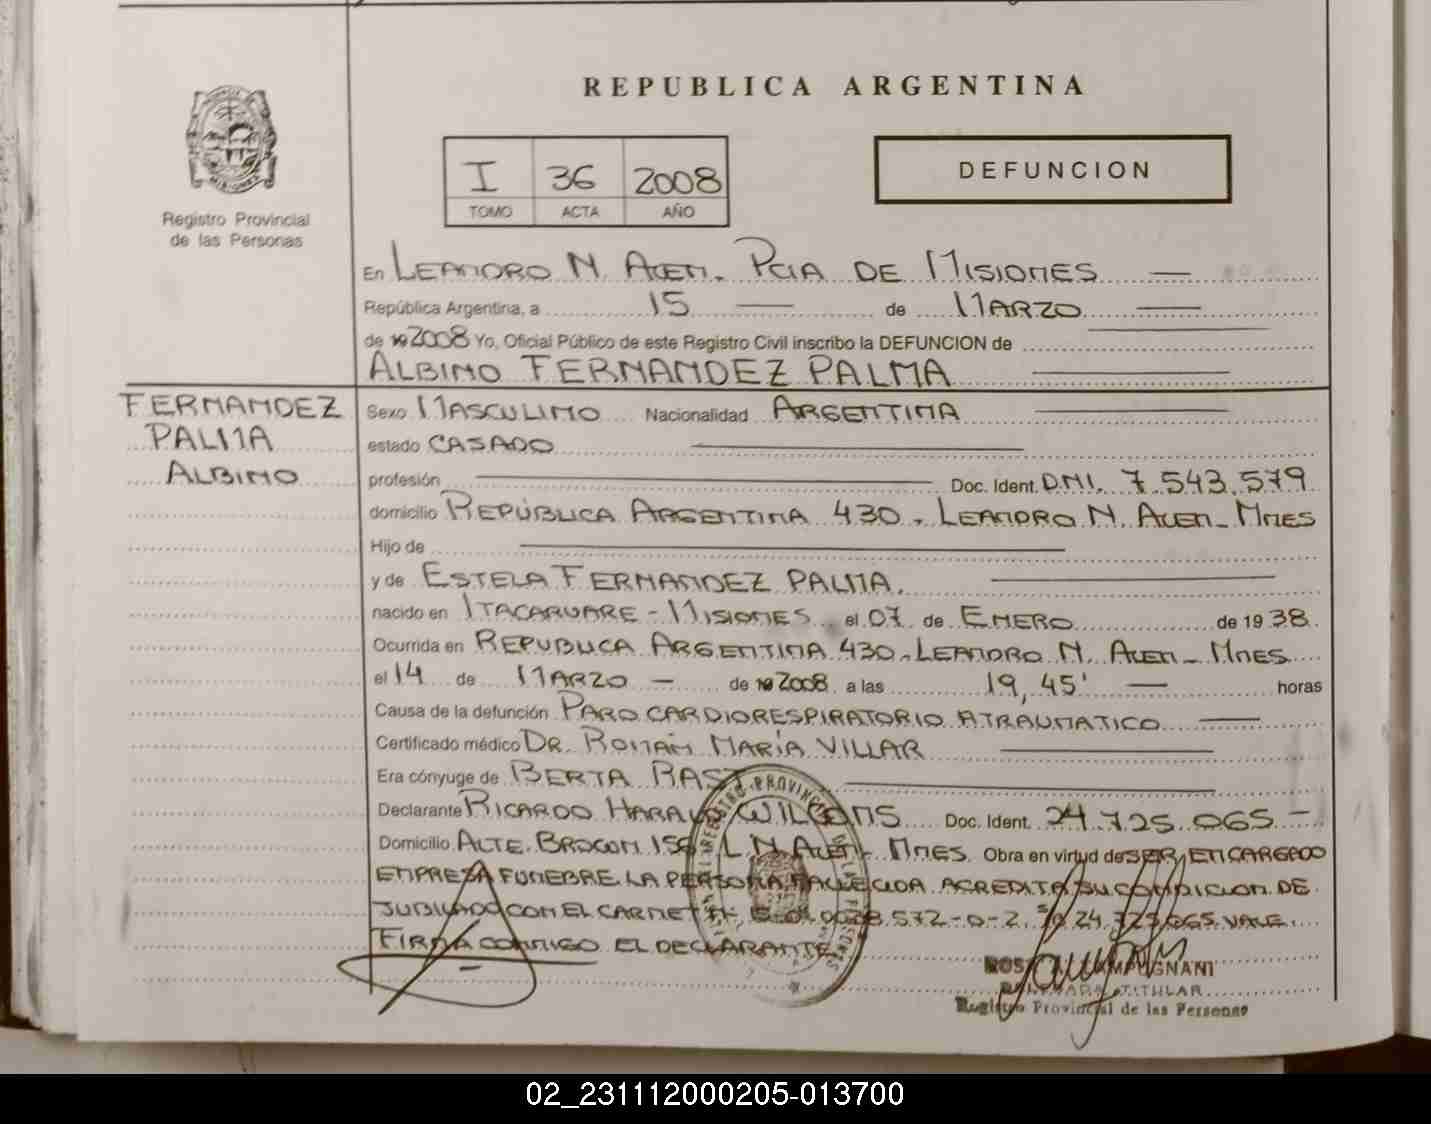 REPUBLICA ARGENTINA
I 36 2008
TOMO ACTA AÑO
DEFUNCION
Registro Provincial
de las Personas
En LEANDRO N. ALEM. PCIA DE MISIONES
República Argentina, a 15 de MARZO
de 19 2008 Yo, Oficial Público de este Registro Civil inscribo la DEFUNCION de
ALBINO FERNANDEZ PALMA
FERNANDEZ
PALMA
ALBINO
Sexo MASCULINO Nacionalidad ARGENTINA
estado CASADO
profesión Doc. Ident. DNI. 7.543.579
domicilio REPÚBLICA ARGENTINA 430, LEANDRO N. ALEM - MNES
Hijo de
y de ESTELA FERNANDEZ PALMA.
nacido en ITACARUARE - MISIONES el 07 de ENERO de 19 38
Ocurrida en REPUBLICA ARGENTINA 430, LEANDRO N. ALEM - MNES
el 14 de MARZO de 19 2008 a las 19,45' horas
Causa de la defunción PARO CARDIORESPIRATORIO ATRAUMATICO
Certificado médico DR. ROMÁN MARÍA VILLAR
Era cónyuge de BERTA RAST
Declarante RICARDO HARALD WILCOMS Doc. Ident. 24.725.065 -
Domicilio ALTE. BROWN L. N. ALEM - MNES. Obra en virtud de SER ENCARGADO
EMPRESA FUNEBRE. LA PERSONA FALLECIDA ACREDITA SU CONDICION DE
JUBILADO CON EL CARNET 572-0-2. 24.725.065. VALE.
FIRMA CONMIGO EL DECLARANTE
REGISTRO PROVINCIAL DE LAS PERSONAS
TITULAR
Registro Provincial de las Personas
02_231112000205-013700